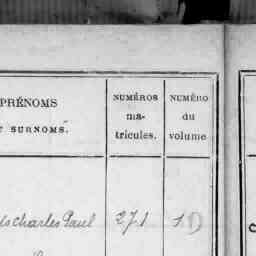 PRÉNOMS
ET SURNOMS.
NUMÉROS
ma-
tricules.
NUMÉRO
du
volume
Charles Paul
271
1